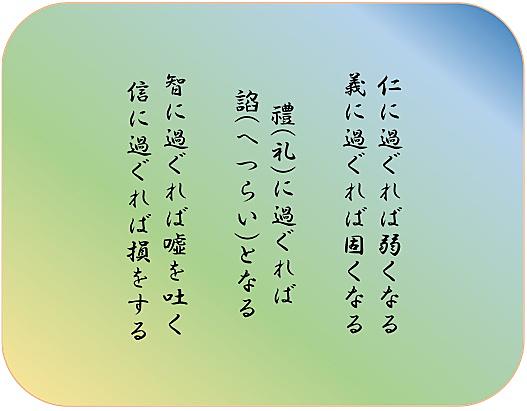 仁に過ぐれば弱くなる
義に過ぐれば固くなる
禮(礼)に過ぐれば
諂(へつらい)となる
智に過ぐれば嘘を吐く
信に過ぐれば損をする